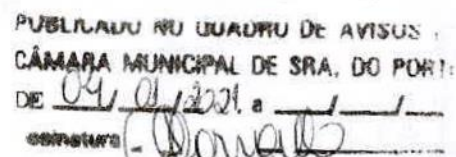 PUBLICADO NO QUADRO DE AVISOS
CÂMARA MUNICIPAL DE SRA. DO PORT
DE 04/01/2021, a ___/___/___
assinatura